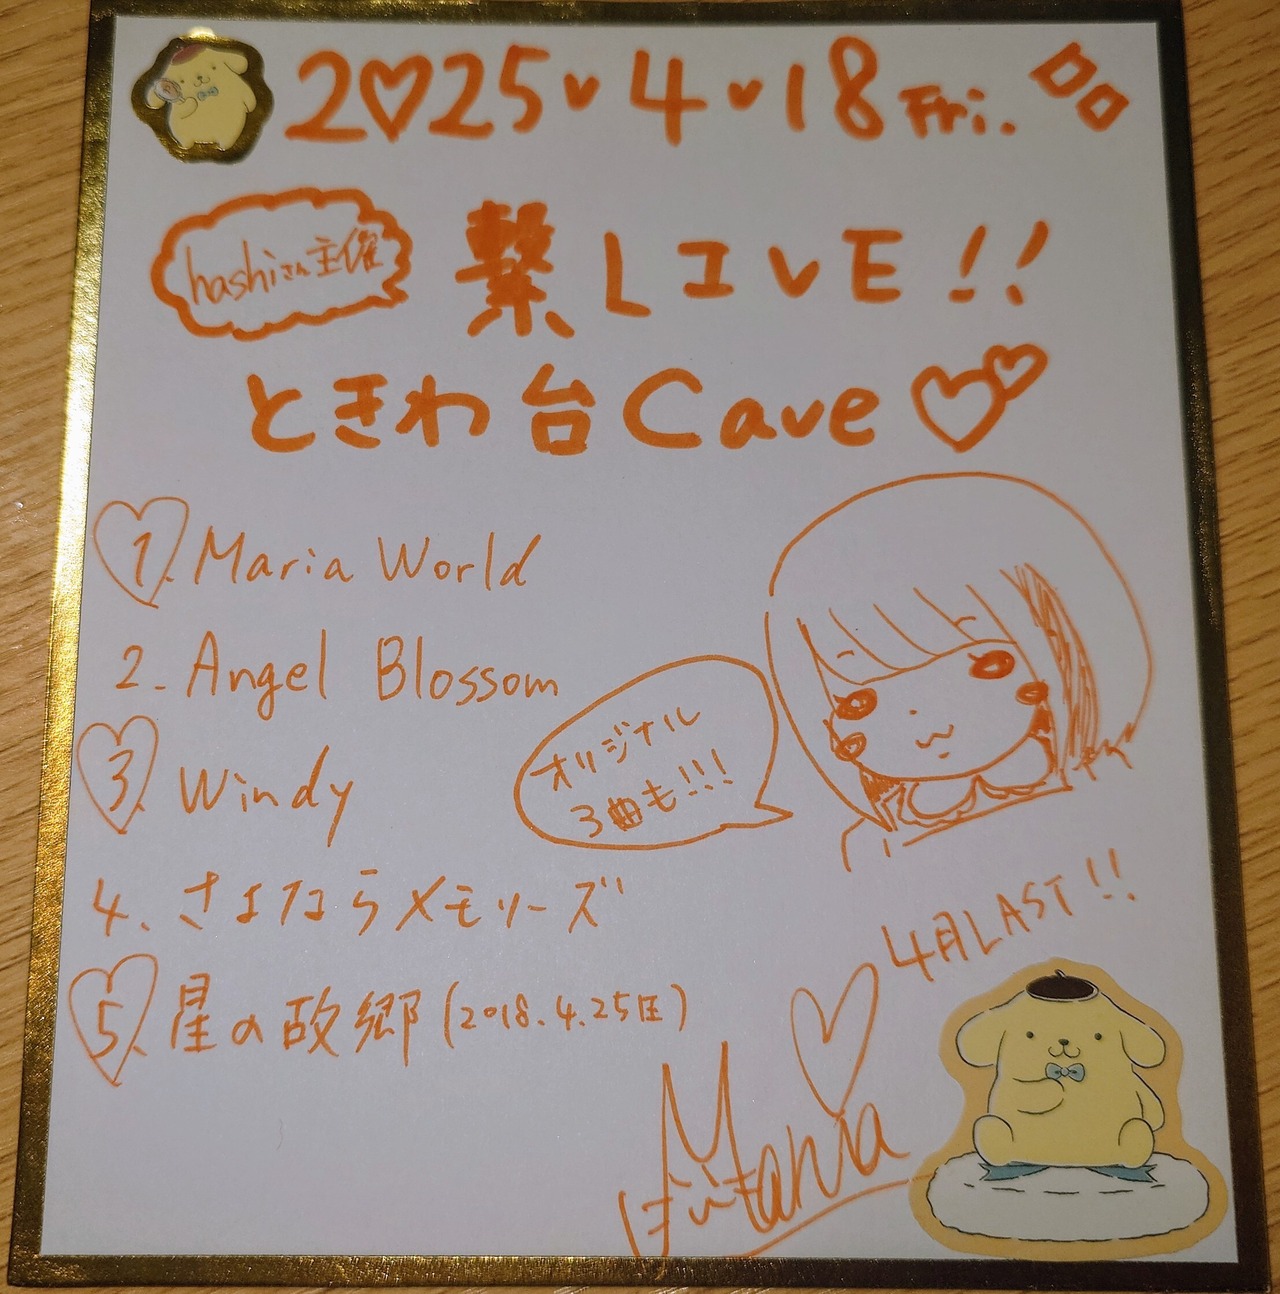 2♡25.4.18 Fri.
hashiさん主催
繋LIVE!!
ときわ台Cave♡♡
1. Maria World
2. Angel Blossom
3. Windy
オリジナル
3曲も!!!
4. さよならメモリーズ
4月LAST!!
5. 星の故郷(2018.4.25圧)
Maria